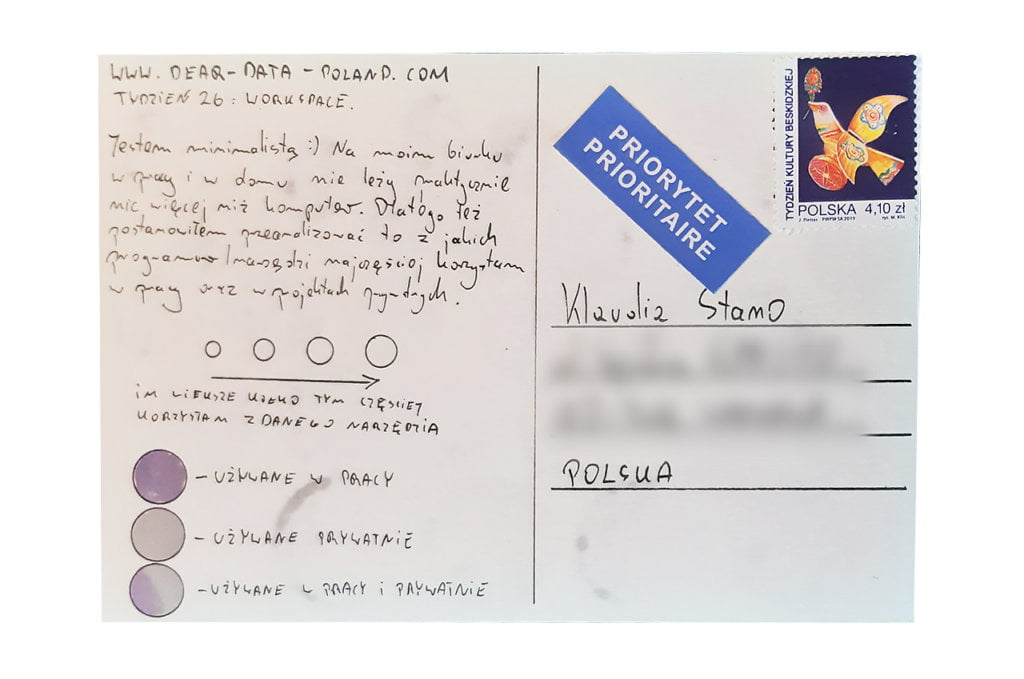 WWW. DEAR-DATA-POLAND. COM
TYDZIEŃ 26: WORKSPACE.
Jestem minimalistą :) Na moim biurku
w pracy i w domu nie leży praktycznie
nic więcej niż komputer. Dlatego też
postanowiłem przeanalizować to z jakich
programów/narzędzi najczęściej korzystam
w pracy oraz w projektach prywatnych.
IM WIĘKSZE KOŁKO TYM CZĘŚCIEJ
KORZYSTAM Z DANEGO NARZĘDZIA
- UŻYWANE W PRACY
- UŻYWANE PRYWATNIE
- UŻYWANE W PRACY I PRYWATNIE
PRIORYTET
PRIORITAIRE
TYDZIEŃ KULTURY BESKIDZKIEJ
POLSKA 4,10 zł
PWPW SA 2019
Klaudia Stano
POLSKA